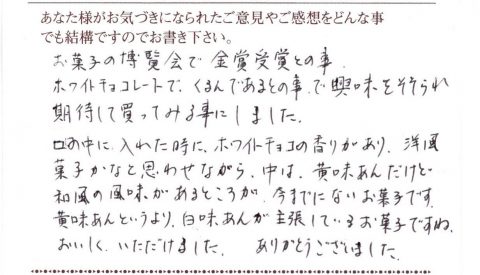 あなた様がお気づきになられたご意見やご感想をどんな事
でも結構ですのでお書き下さい。
お菓子の博覧会で金賞受賞との事.
ホワイトチョコレートで、くるんであるとの事.で興味をそそられ
期待して買ってみる事にしました.
口の中に入れた時に、ホワイトチョコの香りがあり、洋風
菓子かなと思わせながら、中は、黄味あんだけど
和風の風味があるところが、今までにないお菓子です.
黄味あんというより、白味あんが主張しているお菓子ですね.
おいしく、いただけました. ありがとうございました.